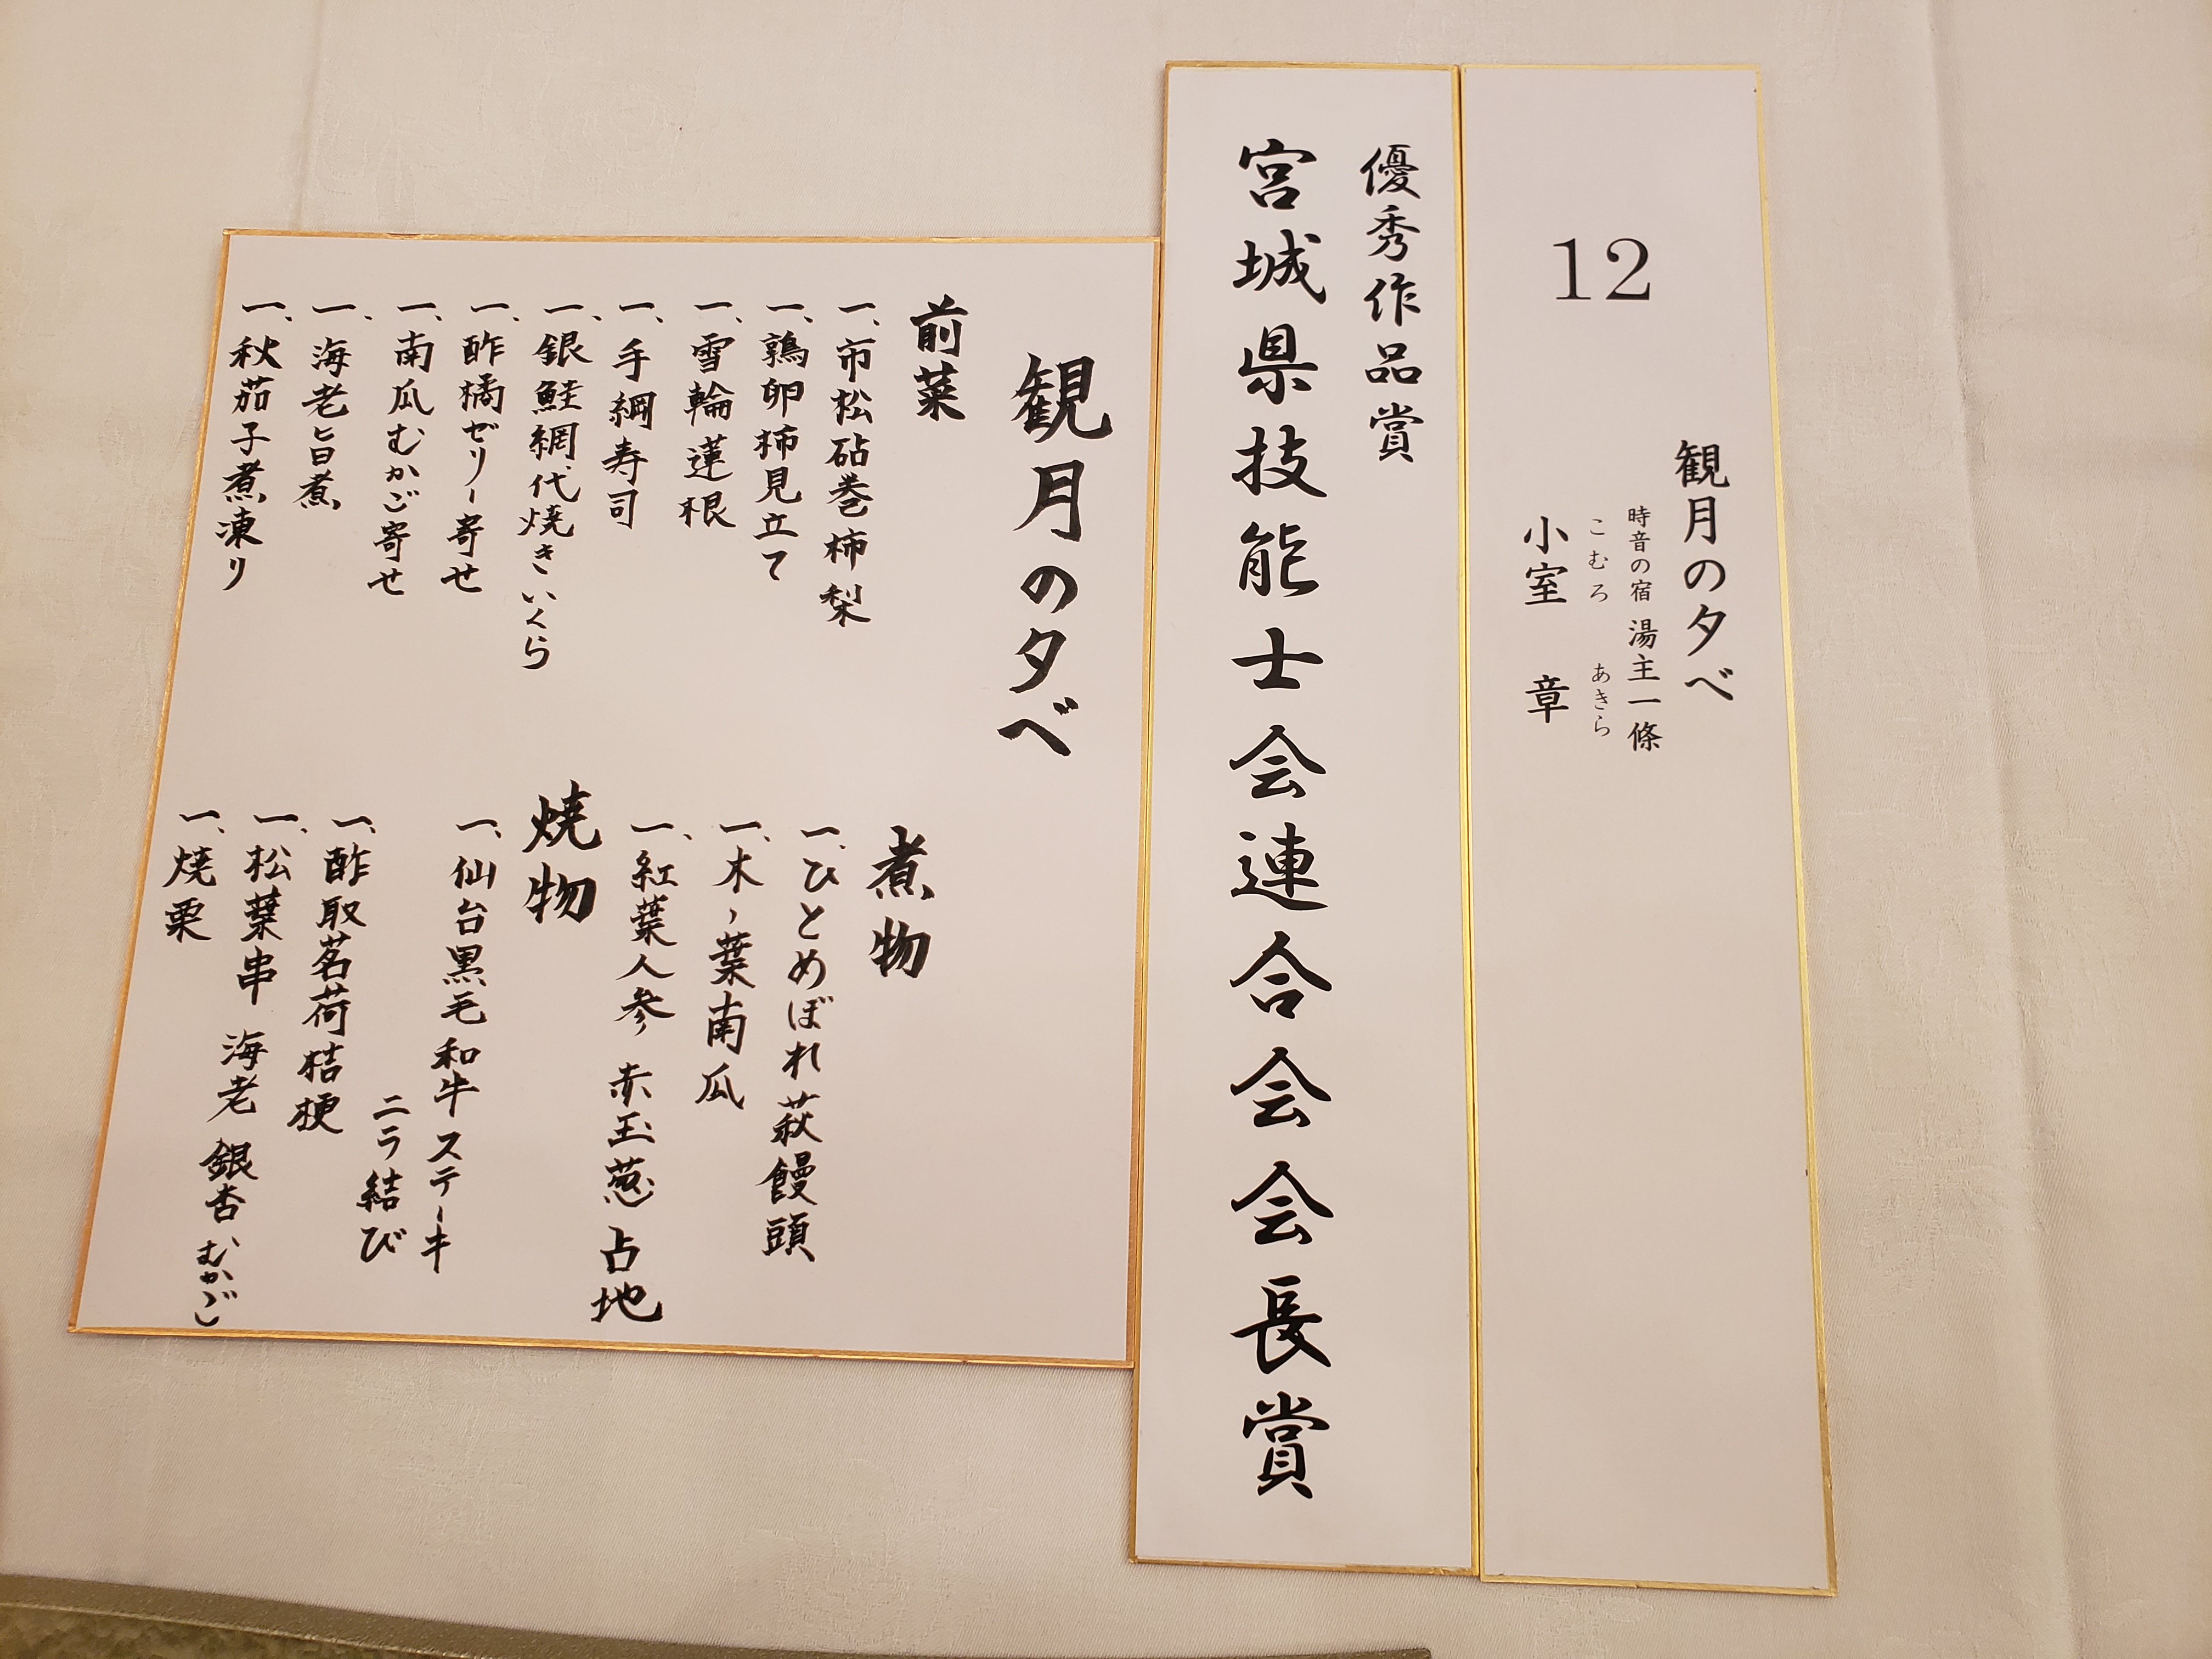 12
観月の夕べ
時音の宿 湯主一條
こむろ あきら
小室 章
優秀作品賞
宮城県技能士会連合会会長賞
観月の夕べ
前菜
一、市松砧巻柿梨
一、鶉卵柿見立て
一、雪輪蓮根
一、手綱寿司
一、銀鮭網代焼きいくら
一、酢橘ゼリー寄せ
一、南瓜むかご寄せ
一、海老旨煮
一、秋茄子煮凍り
煮物
一、ひとめぼれ萩饅頭
一、木ヽ葉南瓜
一、紅葉人参 赤玉葱 占地
焼物
一、仙台黒毛和牛ステーキ
ニラ結び
一、酢取茗荷桔梗
一、松葉串 海老 銀杏 むかご
一、焼栗